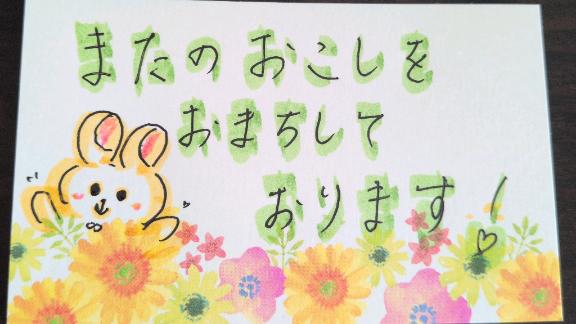 またのおこしを
おまちして
おります!